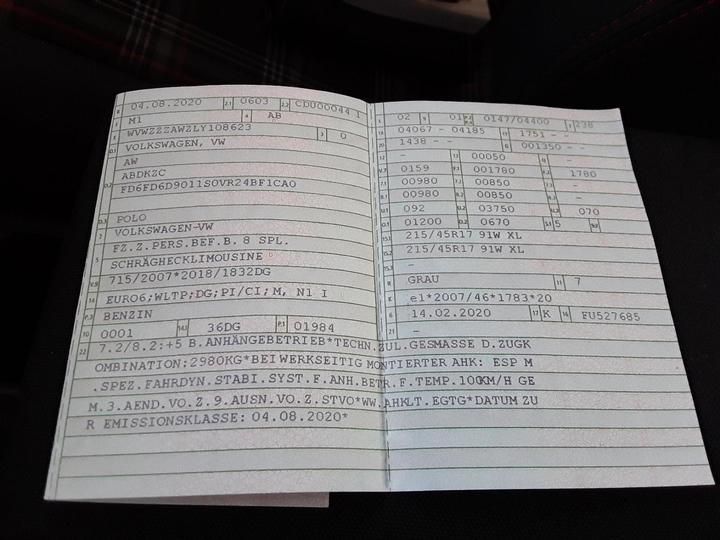 B 04.08.2020 2.1 0603 2.2 CDU00044 1
J M1 4 AB
E WVWZZZAWZLY108623 3 0
D.1 VOLKSWAGEN, VW
AW
D.2 ABDKZC
FD6FD6D9011S0VR24BF1CA0
D.3 POLO
2 VOLKSWAGEN-VW
5 FZ.Z.PERS.BEF.B. 8 SPL.
SCHRÄGHECKLIMOUSINE
V.9 715/2007*2018/1832DG
14 EURO6;WLTP;DG;PI/CI; M, N1 I
P.3 BENZIN
10 0001 14.1 36DG P.1 01984
L 02 9 01 P.2 P.4 0147/04400 T 238
18 04067 - 04185 19 1751 - -
20 1438 - - G 001350 - -
12 - 13 00050 Q -
V.7 0159 F.1 001780 F.2 1780
7.1 00980 7.2 00850 7.3 -
8.1 00980 8.2 00850 8.3 -
U.1 092 U.2 03750 U.3 070
O.1 01200 O.2 0670 S.1 5 S.2
15.1 215/45R17 91W XL
15.2 215/45R17 91W XL
15.3 -
R GRAU 11 7
K e1*2007/46*1783*20
6 14.02.2020 17 K 16 FU527685
21 -
22 7.2/8.2:+5 B.ANHÄNGEBETRIEB*TECHN.ZUL.GESMASSE D.ZUGK
OMBINATION:2980KG*BEI WERKSEITIG MONTIERTER AHK: ESP M
.SPEZ.FAHRDYN.STABI.SYST.F.ANH.BETR.F.TEMP.100KM/H GE
M.3.AEND.VO.Z.9.AUSN.VO.Z.STVO*WW.AHKLT.EGTG*DATUM ZU
R EMISSIONSKLASSE: 04.08.2020*